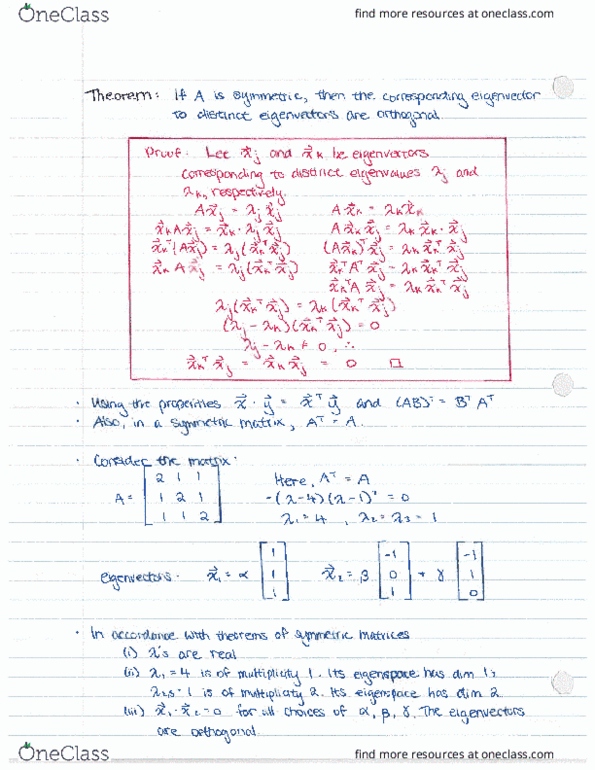 OneClass
find more resources at oneclass.com
Theorem: If A is symmetric, then the corresponding eigenvector
to distinct eigenvectors are orthogonal.
Proof: Let x⃗j and x⃗k be eigenvectors
corresponding to distinct eigenvalues λj and
λk, respectively.
Ax⃗j = λj x⃗j    Ax⃗k = λk x⃗k
x⃗k Ax⃗j = x⃗k · λj x⃗j    Ax⃗k x⃗j = λk x⃗k · x⃗j
x⃗kᵀ(Ax⃗j) = λj(x⃗kᵀ x⃗j)    (Ax⃗k)ᵀ x⃗j = λk x⃗kᵀ x⃗j
x⃗k A x⃗j = λj(x⃗kᵀ x⃗j)    x⃗kᵀAᵀ x⃗j = λk x⃗kᵀ x⃗j
x⃗kᵀA x⃗j = λk x⃗kᵀ x⃗j
λj(x⃗kᵀ x⃗j) = λk(x⃗kᵀ x⃗j)
(λj - λk)(x⃗kᵀ x⃗j) = 0
λj - λk ≠ 0, ∴
x⃗kᵀ x⃗j = x⃗k x⃗j = 0 □
· Using the properties x⃗ · y⃗ = x⃗ᵀ y⃗ and (AB)ᵀ = Bᵀ Aᵀ
· Also, in a symmetric matrix, Aᵀ = A.
· Consider the matrix:
A = [2 1 1    Here, Aᵀ = A
1 2 1    -(λ-4)(λ-1)² = 0
1 1 2]    λ₁ = 4, λ₂ = λ₃ = 1
eigenvectors: x⃗₁ = α [1 1 1]    x⃗₂ = β [-1 0 1] + γ [-1 1 0]
· In accordance with theorems of symmetric matrices
(i) λ's are real
(ii) λ₁ = 4 is of multiplicity 1. Its eigenspace has dim 1;
λ₂,₃ = 1 is of multiplicity 2. Its eigenspace has dim 2.
(iii) x⃗₁ · x⃗₂ = 0 for all choices of α, β, γ. The eigenvectors
are orthogonal.
OneClass
find more resources at oneclass.com